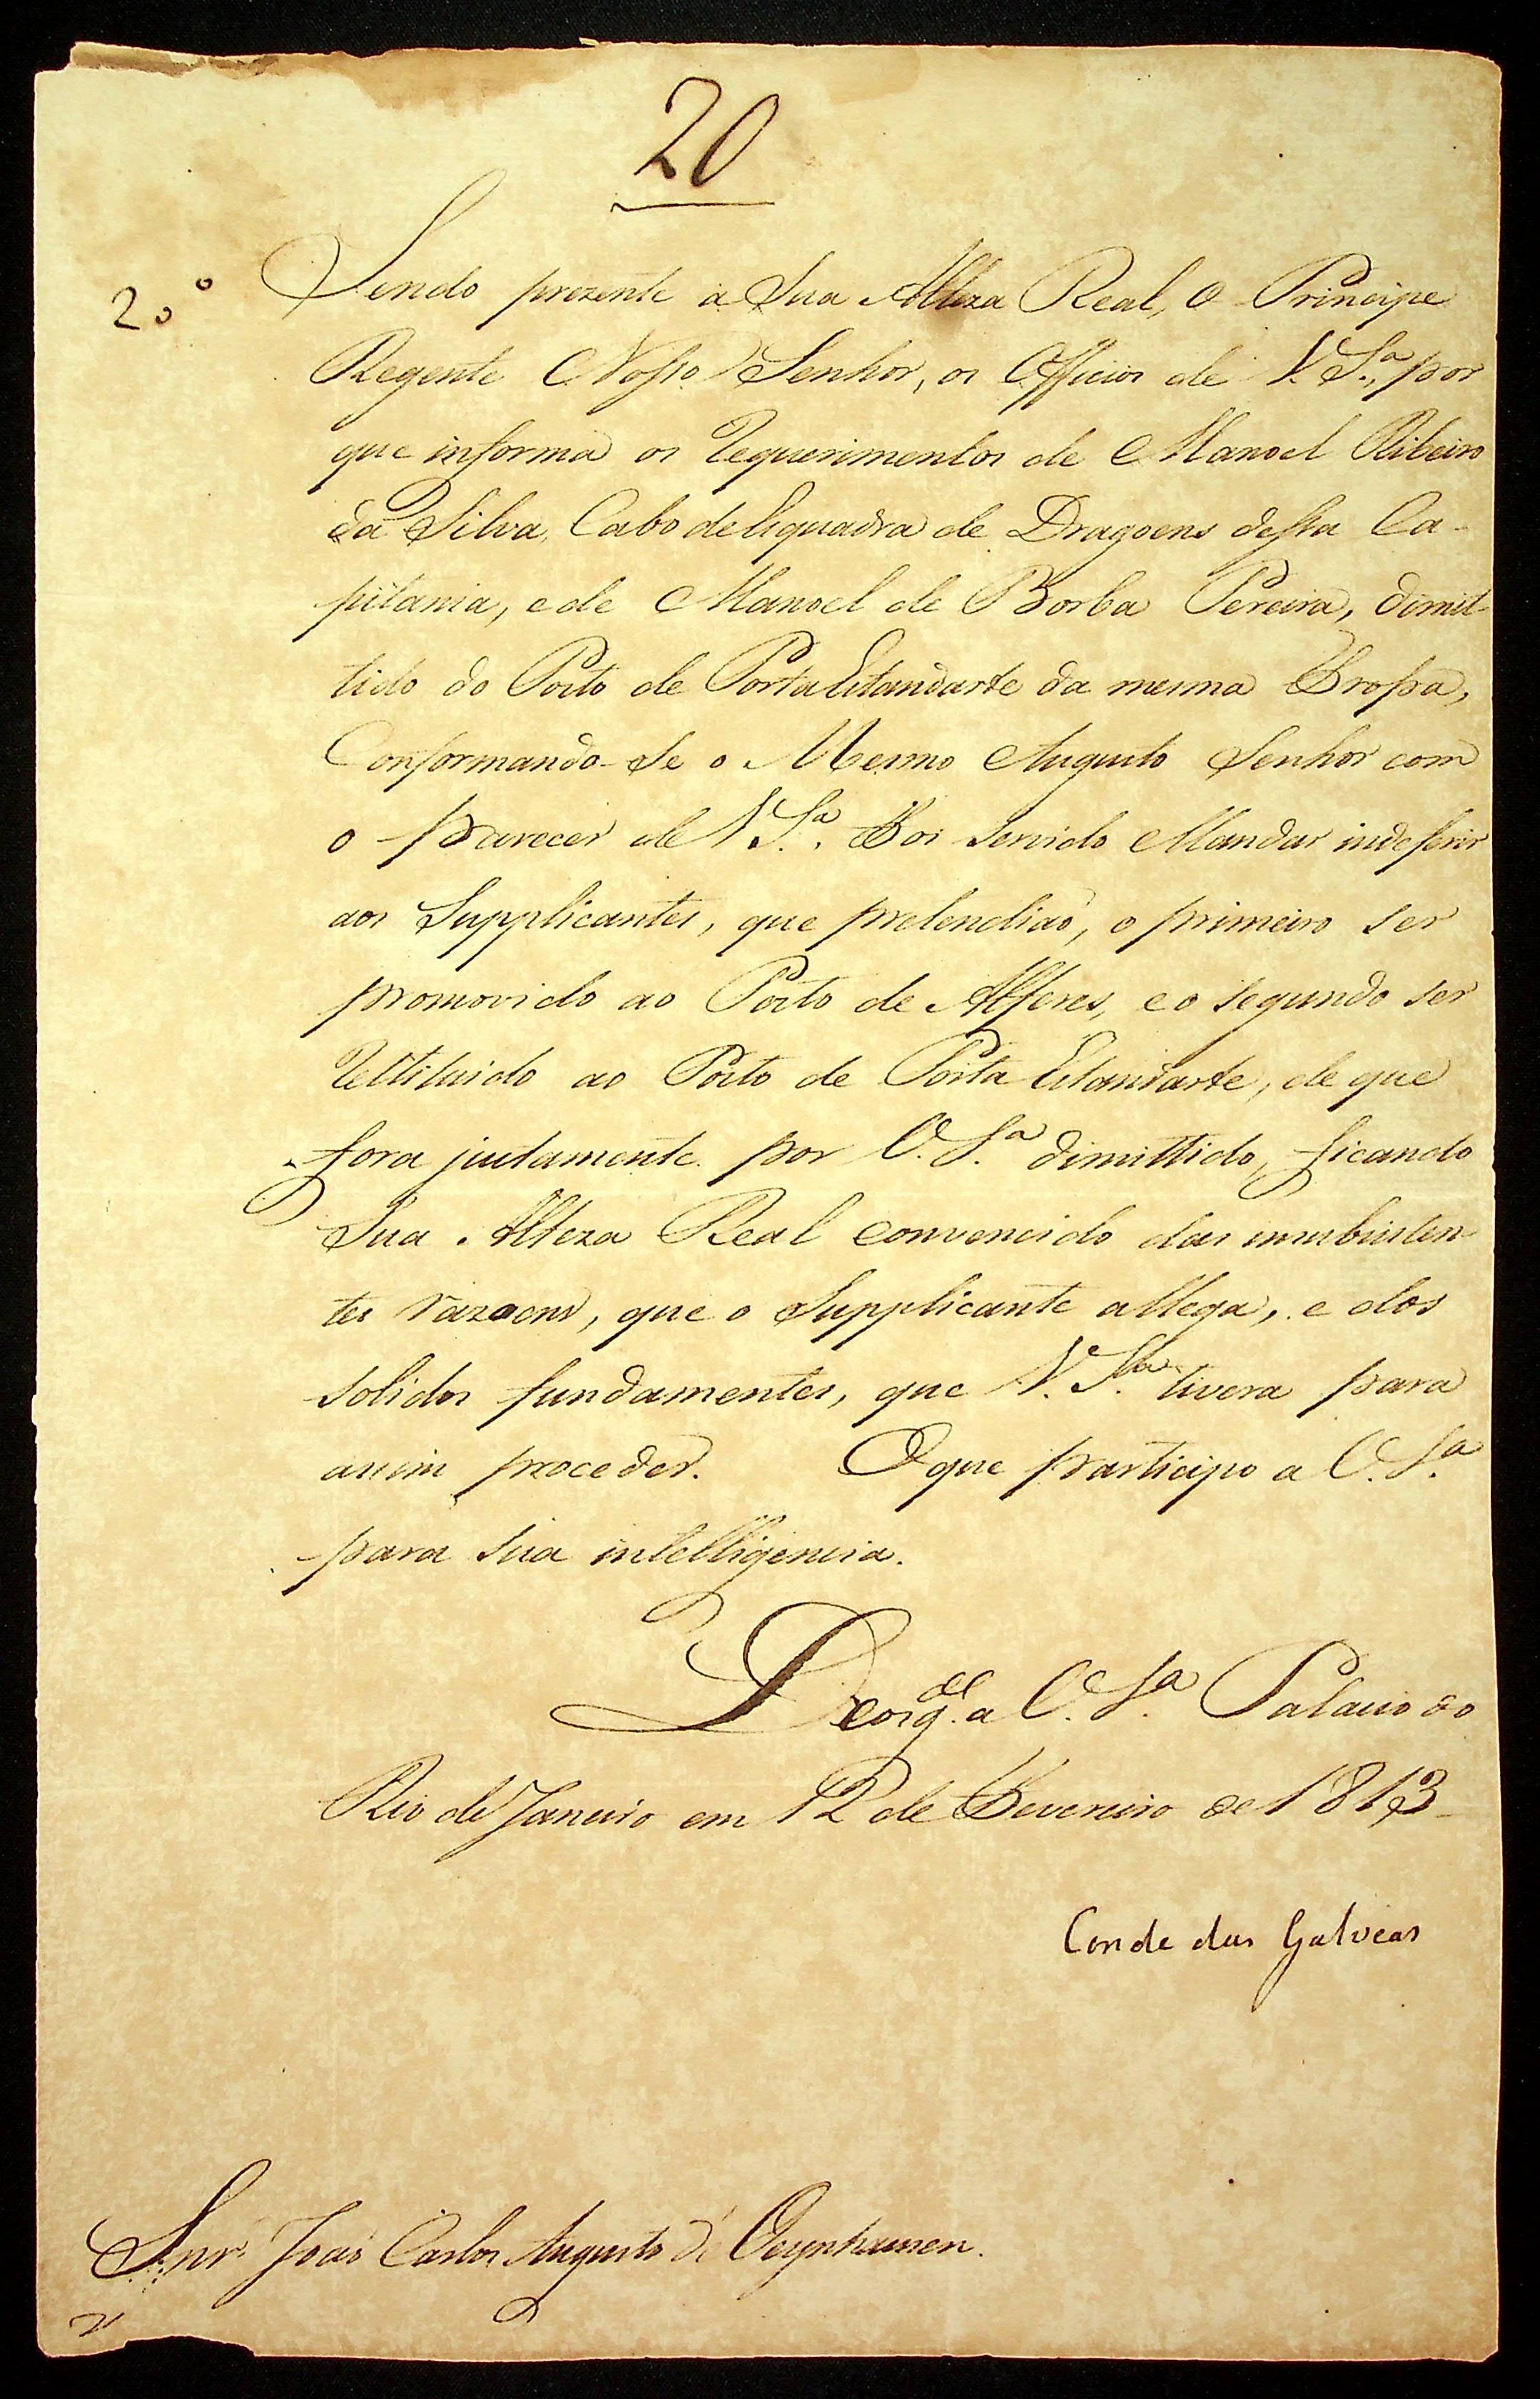 20
20º
Sendo prezente a Sua Alteza Real, O Principe
Regente Nosso Senhor, os Officios de V. Sª., por
que informa os Requerimentos de Manoel Ribeiro
da Silva, Cabo de Esquadra de Dragoens dessa Ca-
pitania, e de Manoel de Borba Pereira, dimit-
tido do Posto de Porta Estandarte da mesma Tropa,
Conformando-se o Mesmo Augusto Senhor com
o parecer de V. Sª. Foi Servido Mandar indeferir
aos Supplicantes, que pretendiaõ, o primeiro ser
promovido ao Posto de Alferes, e o segundo ser
Restituido ao Posto de Porta Estandarte, de que
fora justamente por V. Sª. dimittido, ficando
Sua Alteza Real convencido das insubsisten-
tes razoens, que o Supplicante allega, e dos
solidos fundamentos, que V. Sª. tivera para
assim proceder. O que participo a V. Sª.
para sua intelligencia.
Deos g.de a V. Sª. Palacio do
Rio de Janeiro em 12 de Fevereiro de 1813
Conde das Galveas
Snr. Joaõ Carlos Augusto d' Oeynhausen.